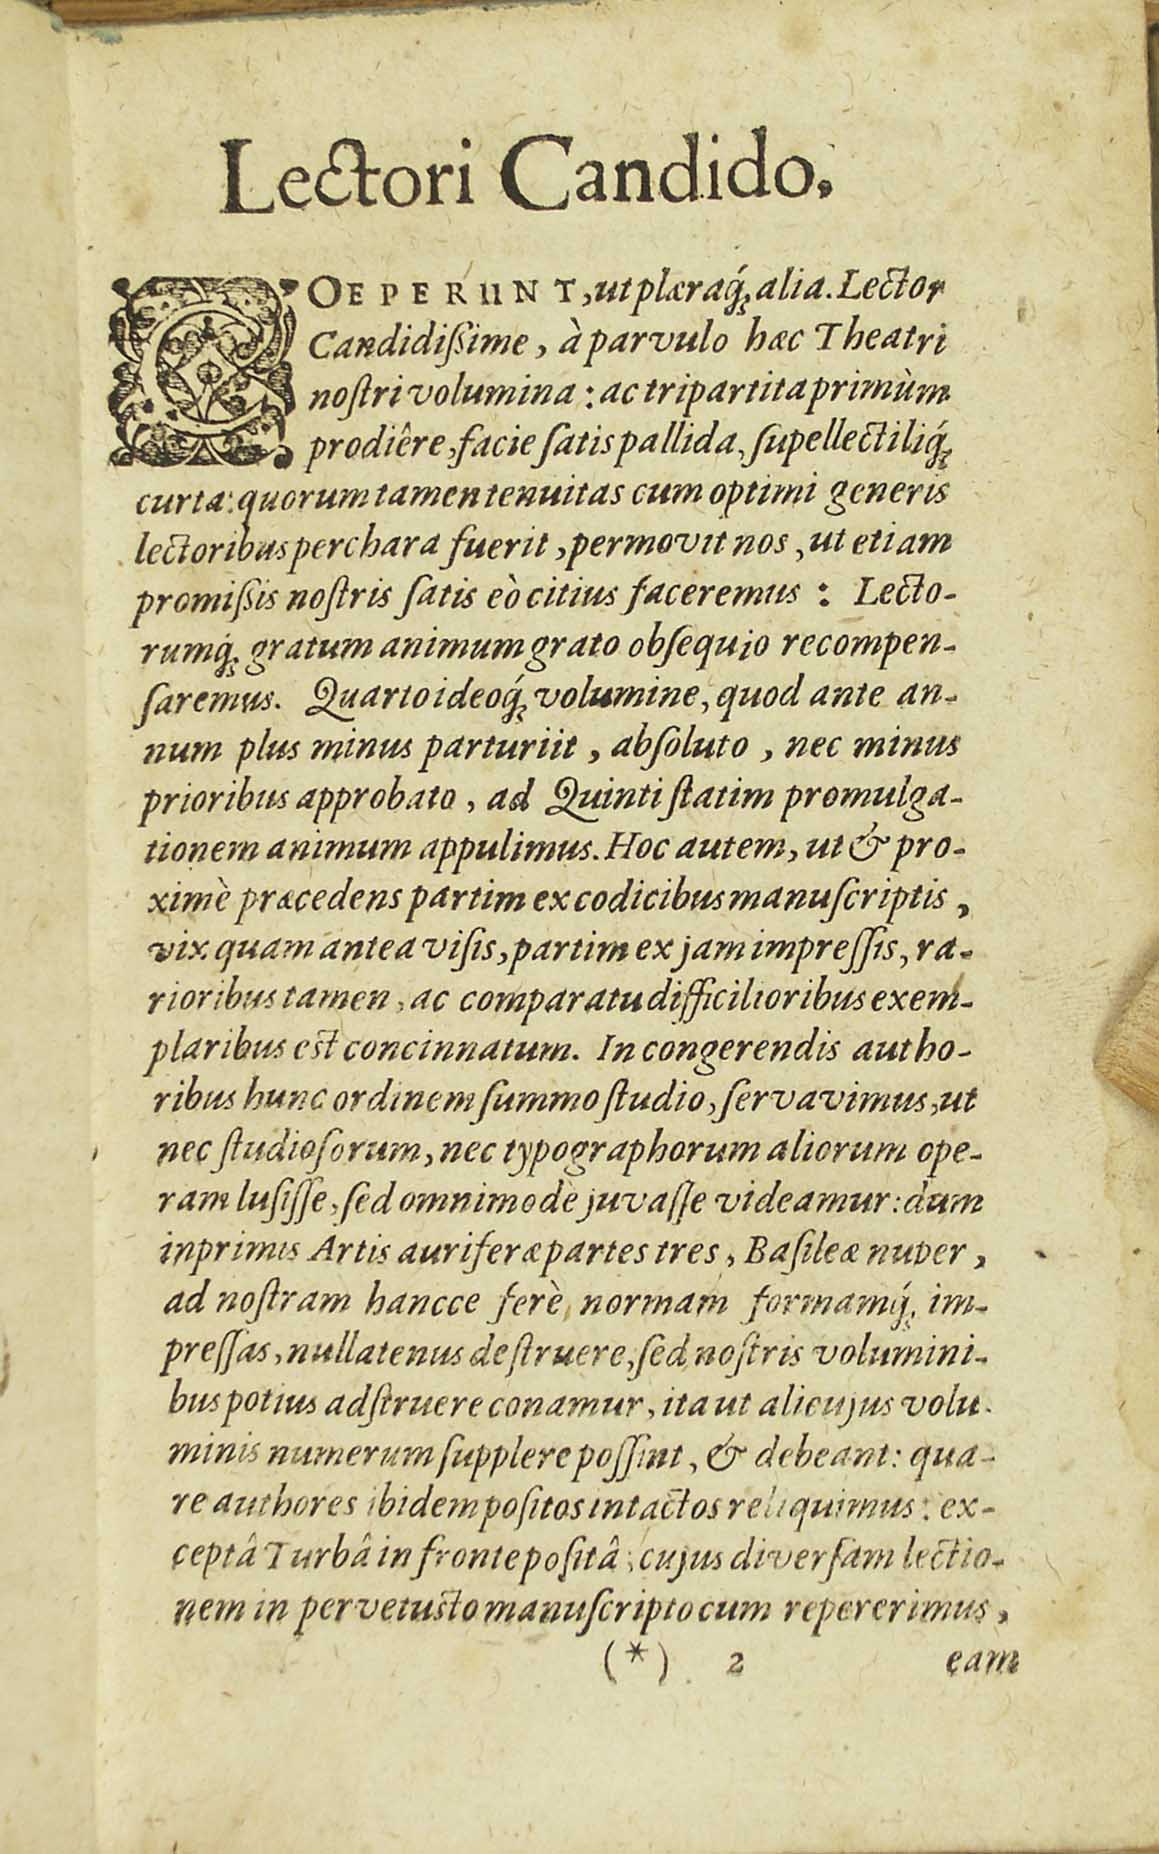 Lectori Candido.
COEPERUNT, ut plæraq́; alia. Lector
Candidiſsime, à parvulo hæc Theatri
noſtri volumina: ac tripartita primùm
prodiêre, facie ſatis pallida, ſupellectiliq́;
curta: quorum tamen tenuitas cum optimi generis
lectoribus perchara fuerit, permovit nos, ut etiam
promiſsis noſtris ſatis eò citius faceremus: Lecto-
rumq́; gratum animum grato obſequio recompen-
ſaremus. Quarto ideoq́; volumine, quod ante an-
num plus minus parturiit, abſoluto, nec minus
prioribus approbato, ad Quinti ſtatim promulga-
tionem animum appulimus. Hoc autem, ut & pro-
ximè præcedens partim ex codicibus manuſcriptis,
vix quam antea viſis, partim ex jam impreſſis, ra-
rioribus tamen, ac comparatu difficilioribus exem-
plaribus est concinnatum. In congerendis autho-
ribus hunc ordinem ſummo ſtudio, ſervavimus, ut
nec ſtudioſorum, nec typographorum aliorum ope-
ram luſiſſe, ſed omnimodè juvaſſe videamur: dum
inprimis Artis auriferæ partes tres, Baſileæ nuper,
ad noſtram hancce ferè normam formamq́; im-
preſſas, nullatenus deſtruere, ſed noſtris volumini-
bus potius adſtruere conamur, ita ut alicujus volu-
minis numerum ſupplere poſſint, & debeant: qua-
re authores ibidem poſitos intactos reliquimus: ex-
ceptâ Turbâ in fronte poſitâ: cujus diverſam lectio-
nem in pervetusto manuſcripto cum repererimus,
(*) 2 eam